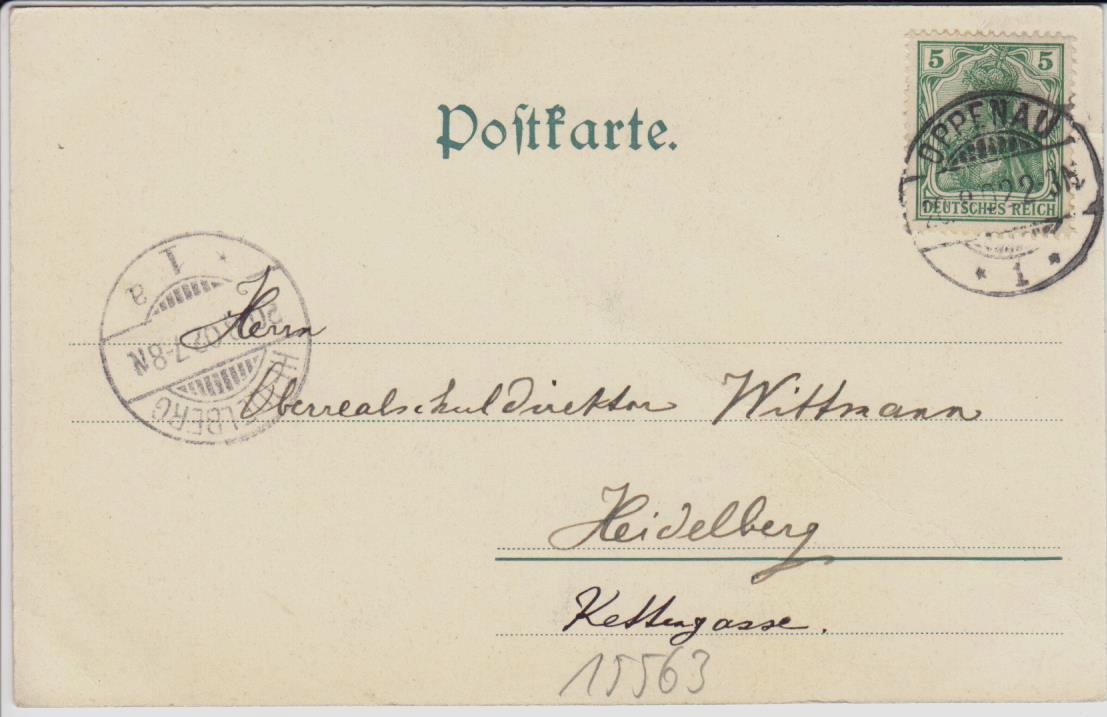 Postkarte.
5 5
OPPENAU
2-3N
DEUTSCHES REICH
* 1 *
1
a
7-8N
HEIDELBERG
Herrn
Oberrealschuldirektor Wittmann
Heidelberg
Kettengasse.
15563